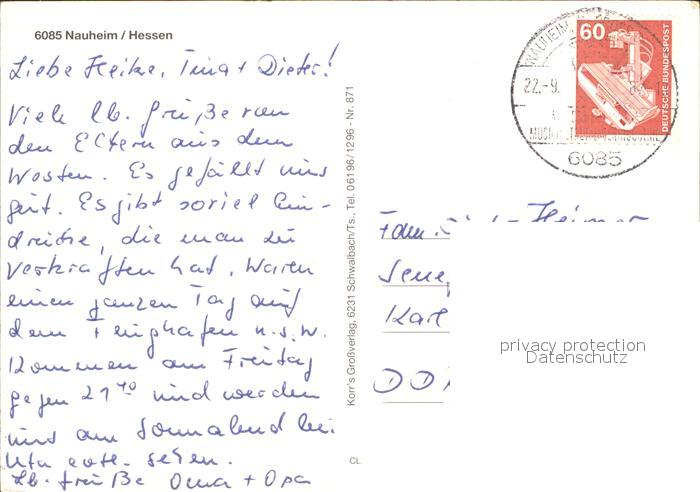 6085 Nauheim / Hessen
Liebe Heike, Tina + Dieter!
Viele lb. Grüße von
den Eltern aus dem
Westen. Es gefällt uns
gut. Es gibt soviel Ein-
drücke, die man zu
verkraften hat. Waren
einen ganzen Tag auf
dem Flughafen u.s.w.
Kommen am Freitag
gegen 21⁴⁰ und werden
uns am Sonnabend bei
Uta evtl. sehen.
Lb. Grüße Oma + Opa
CL
Korr's Großverlag, 6231 Schwalbach/Ts., Tel. 06196/1296 - Nr. 871
NAUHEIM
22.-9.
6085
60
DEUTSCHE BUNDESPOST
Fam.
Karl
DD
privacy protection
Datenschutz